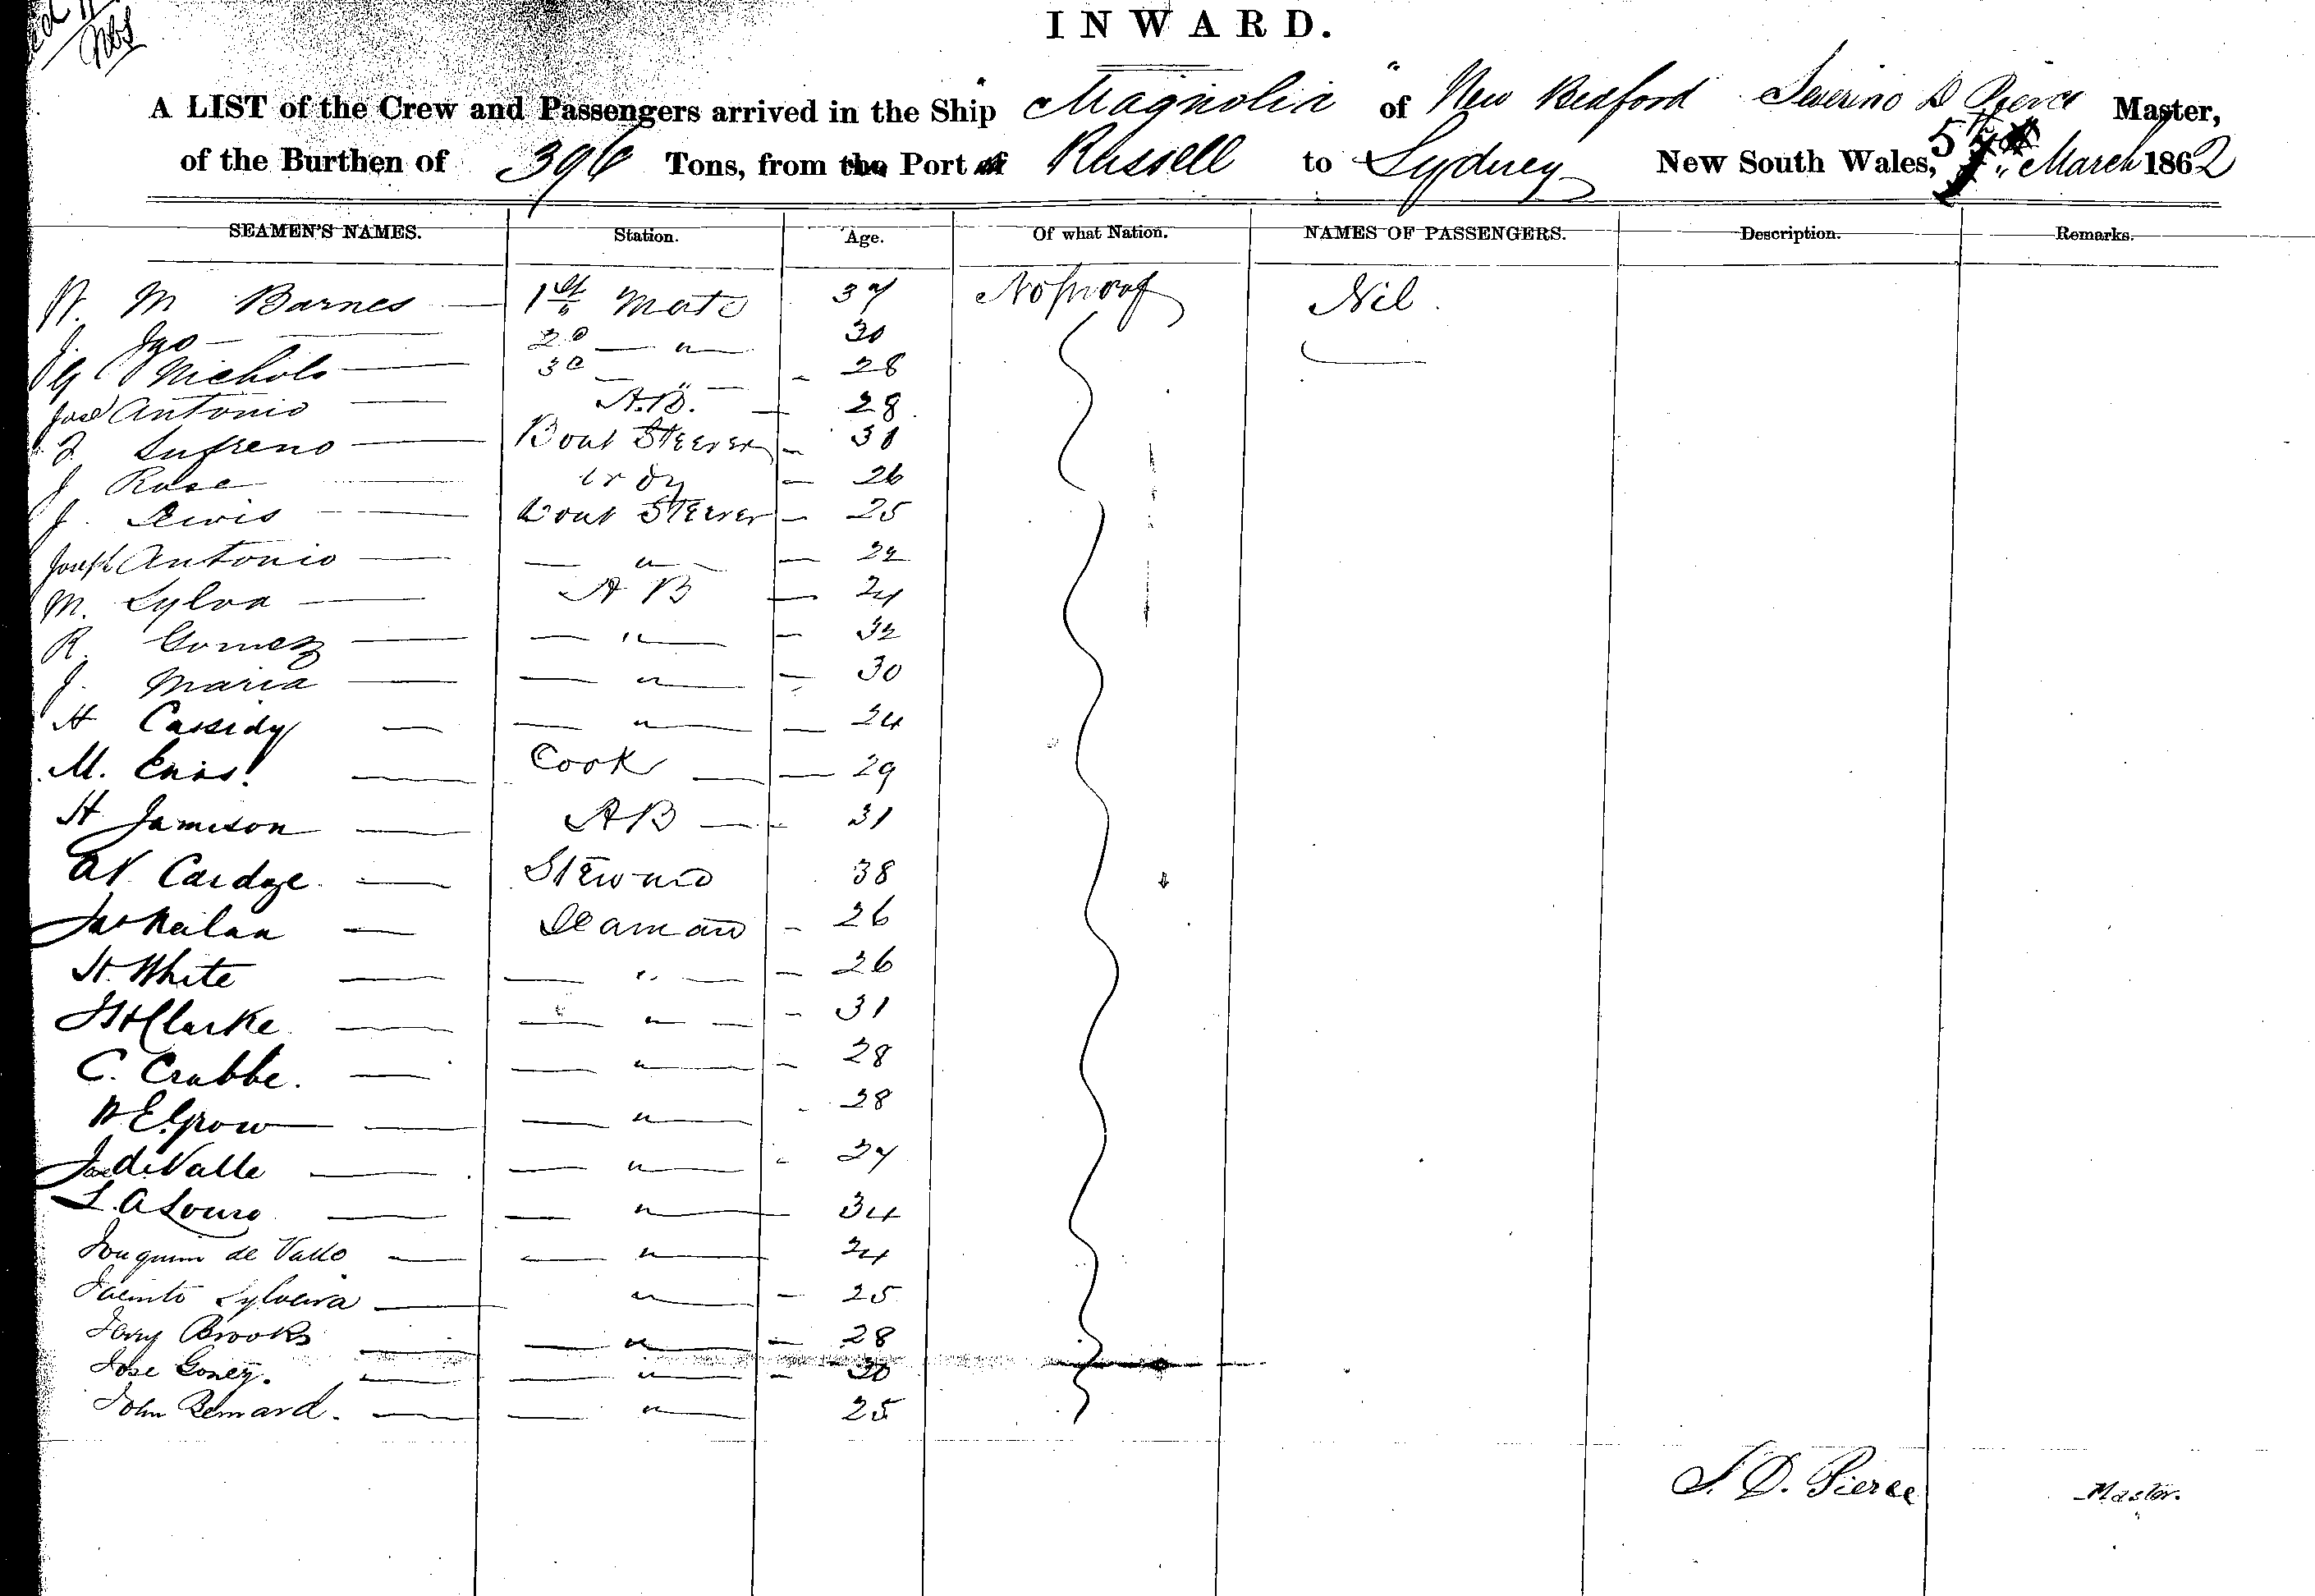 INWARD.
A LIST of the Crew and Passengers arrived in the Ship "Magnolia" of New Bedford Severino D Pierce Master,
of the Burthen of 396 Tons, from the Port of Russell to Sydney New South Wales, 5th March 1862
SEAMEN'S NAMES. Station. Age. Of what Nation. NAMES OF PASSENGERS. Description. Remarks.
W. M Barnes 1st Mate 37 No proof Nil.
J. Jgo 2d " 30
G Nichols 3d " 28
José Antonio A.B. 28
Boat Steerer 31
J Rose 26
J. Lewis Boat Steerer 25
Joseph Antonio " 22
M. Sylva A B 24
R. Gomez " 32
J. Maria " 30
H Cassidy " 24
M. Enis. Cook 29
H Jamison AB 31
Cardze. Steward 38
Seaman 26
H. White " 26
Clarke " 31
C. Crabbe. " 28
W E. Grow " 28
José de Valle " 27
L. A Louro " 34
Joaquim de Vallo " 24
Jacinto Sylveira " 25
Jerry Brooks " 28
Jose Gonez. " 30
John Bernard. " 25
S. D. Pierce Master.